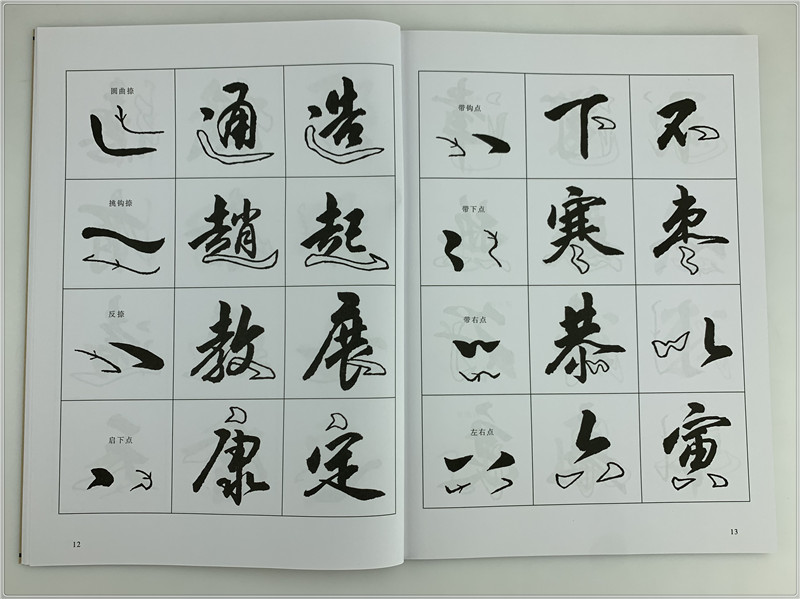 圆曲捺 通 造
挑钩捺 趙 起
反捺 教 展
启下点 康 定
12
带钩点 下 不
带下点 寒 枣
带右点 恭 以
左右点 六 寅
13